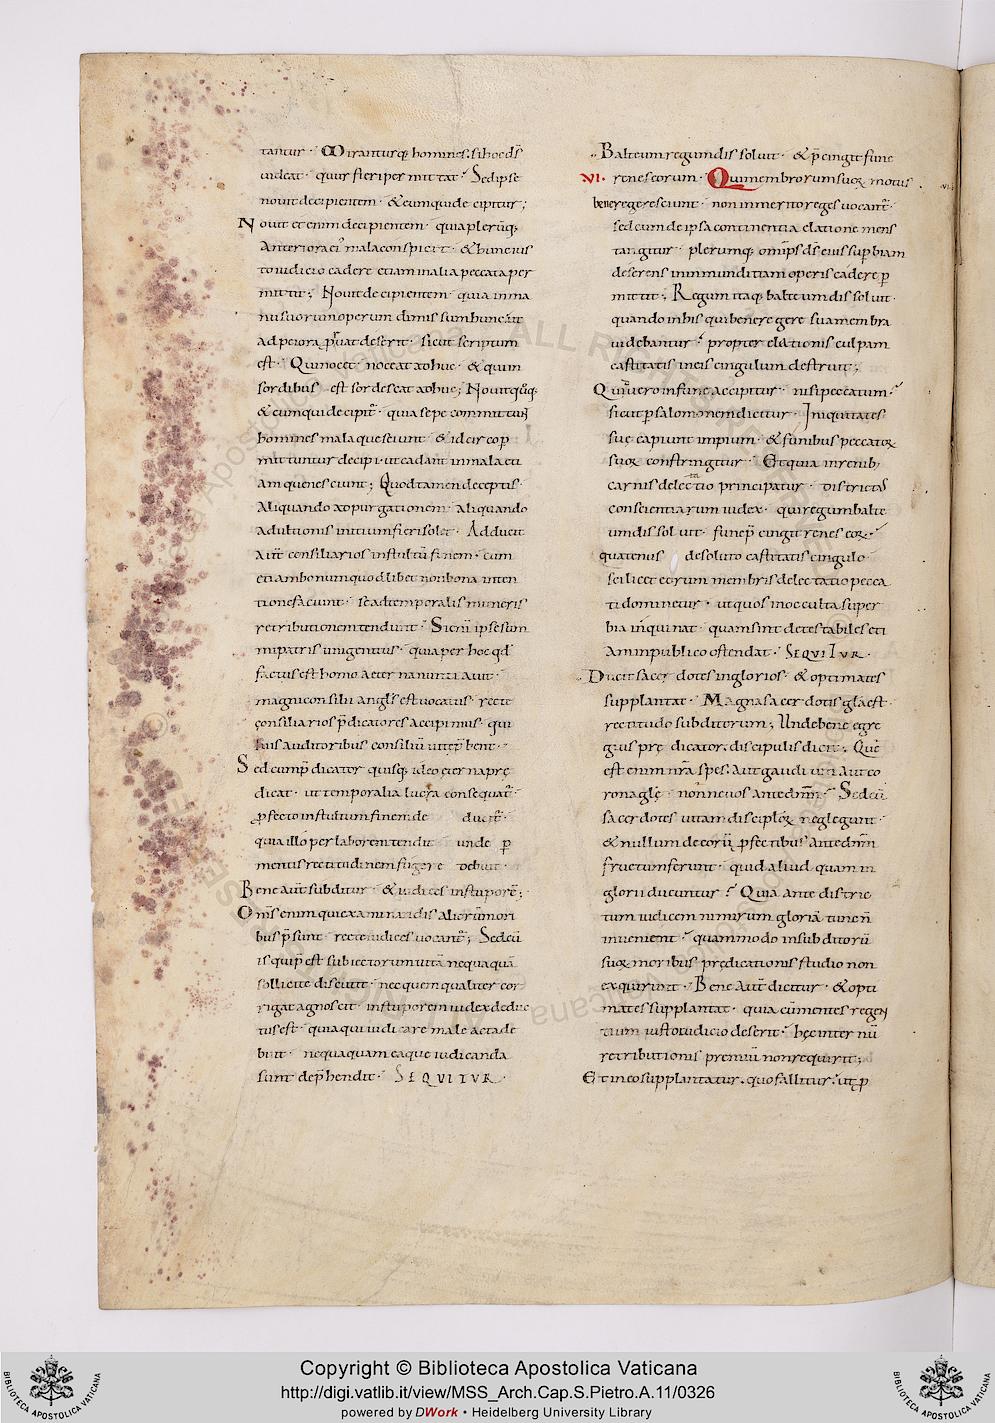 tantur · Miranturq; homines si hoc ds̄
videat · qui fieri permittat · Sed ipse
novit decipientem · & eum qui decipitur ;
Novit etenim decipientem · quia plerūq;
mala conspicit · & huncius
to iudicio cadere etiam in alia peccata per
mittit ; Novit decipientem · quia in ma
nu suorum operum
ad peiora deserit · sicut scriptum
est · Qui nocet noceat adhuc · & qui in
sordibus est sordescat adhuc ; Novit
& eum qui decipit̄ · quia sepe committunt
homines mala que sciunt · & idcirco p̄
mittuntur decipi · ut cadant in mala eti
am que nesciunt ; Quod tamen deceptis ·
Aliquando ad purgationem · aliquando
ad ultionis initium fieri solet · Adducit
Aut̄ consiliarios in stultū finem · cum
etiam bonum quodlibet non bona inten
tione faciunt · se ad temporalis muneris
retributionem tendunt · Si enī ipse sum
mi patris unigenitus · quia per hoc qđ
factus est homo aeterna nuntiavit ·
magni consilii angl̄s est vocatus · recte
consiliarios p̄dicatores accipimus · qui
suis auditoribus consiliū vitę p̄bent ·
Sed cum p̄dicator quisq; ideo ęterna prę
dicat · ut temporalia lucra consequat̄ ·
profecto in stultum finem de ducit̄ ·
quia illo per laborem tendit unde p
mentis rectitudinem fugere debuit ·
Bene aut̄ subditur · & iudices in stuporē ;
Om̄s enim qui examinandis alierum mori
bus p̄sunt · recte iudices vocant̄ ; Sed cū
is qui p̄est subiectorum vitā nequaquā
sollicite discutit · nec quem qualiter cor
rigat agnoscit · in stuporem iudex deduc
tus est · quia qui iudicare male acta de
buit · nequaquam eaque iudicanda
sunt dep̄hendit · SEQUITUR ·
Balteum regum dissolvit · & p̄cingit fune
VI · renes eorum · Qui membrorum suoꝝ motus
bene regere sciunt · non inmerito reges vocant̄ ·
sed cum de ipsa continentia elatione mens
tangitur · plerumq; omp̄s ds̄ eius sup̄biam
deserens in inmunditiam operis cadere p̄
mittit ; Regum itaq; balteum dissolvit ·
quando in his qui bene regere sua membra
videbantur · propter elationis culpam
castitatis in eis cingulum destruit ;
Quid vero in fune accipitur · nisi peccatum ·
sicut p̄ salomonem dicitur · Iniquitates
suę capiunt impium · & funibus peccatoꝝ
suoꝝ constringitur · Et quia in renib;
carnis delectatio principatur · districtus
conscientiarum iudex · qui regum balte
um dissolvit · fune p̄cingit renes eoꝝ ·
quatenus desoluto castitatis cingulo ·
scilicet eorum membris delectatio pecca
ti dominetur · ut quos in occulta super
bia inquinat · quam sint detestabiles eti
am in publico ostendat · SEQUITUR ·
Ducit sacerdotes inglorios · & optimates
supplantat · Magna sacerdotis glā est ·
rectitudo subditorum ; Unde bene egre
gius prędicator · discipulis dicit ; Quę
est enim nr̄a spes · aut gaudium · aut co
rona glę · nonne vos ante dnm̄ · Sed cū
sacerdotes vitam discipuloꝝ neglegunt ·
& nullum de eorū p̄fectibus ante dnm̄
fructum ferunt · quid aliud quam in
glorii ducuntur ? Quia ante distric
tum iudicem nimirum gloriā tunc n̄
invenient · quam modo in subditorū
suoꝝ moribus prędicationis studio non
exquirunt · Bene aut̄ dicitur · & opti
mates supplantat · quia cū mentes regen
tium iusto iudicio deserit · hęc internū
retributionis premiū non requirit ;
Et in eo supplantatur · quo fallitur · ut p̄
Copyright © Biblioteca Apostolica Vaticana
http://digi.vatlib.it/view/MSS_Arch.Cap.S.Pietro.A.11/0326
powered by DWork • Heidelberg University Library
BIBLIOTECA APOSTOLICA VATICANA
BIBLIOTECA APOSTOLICA VATICANA